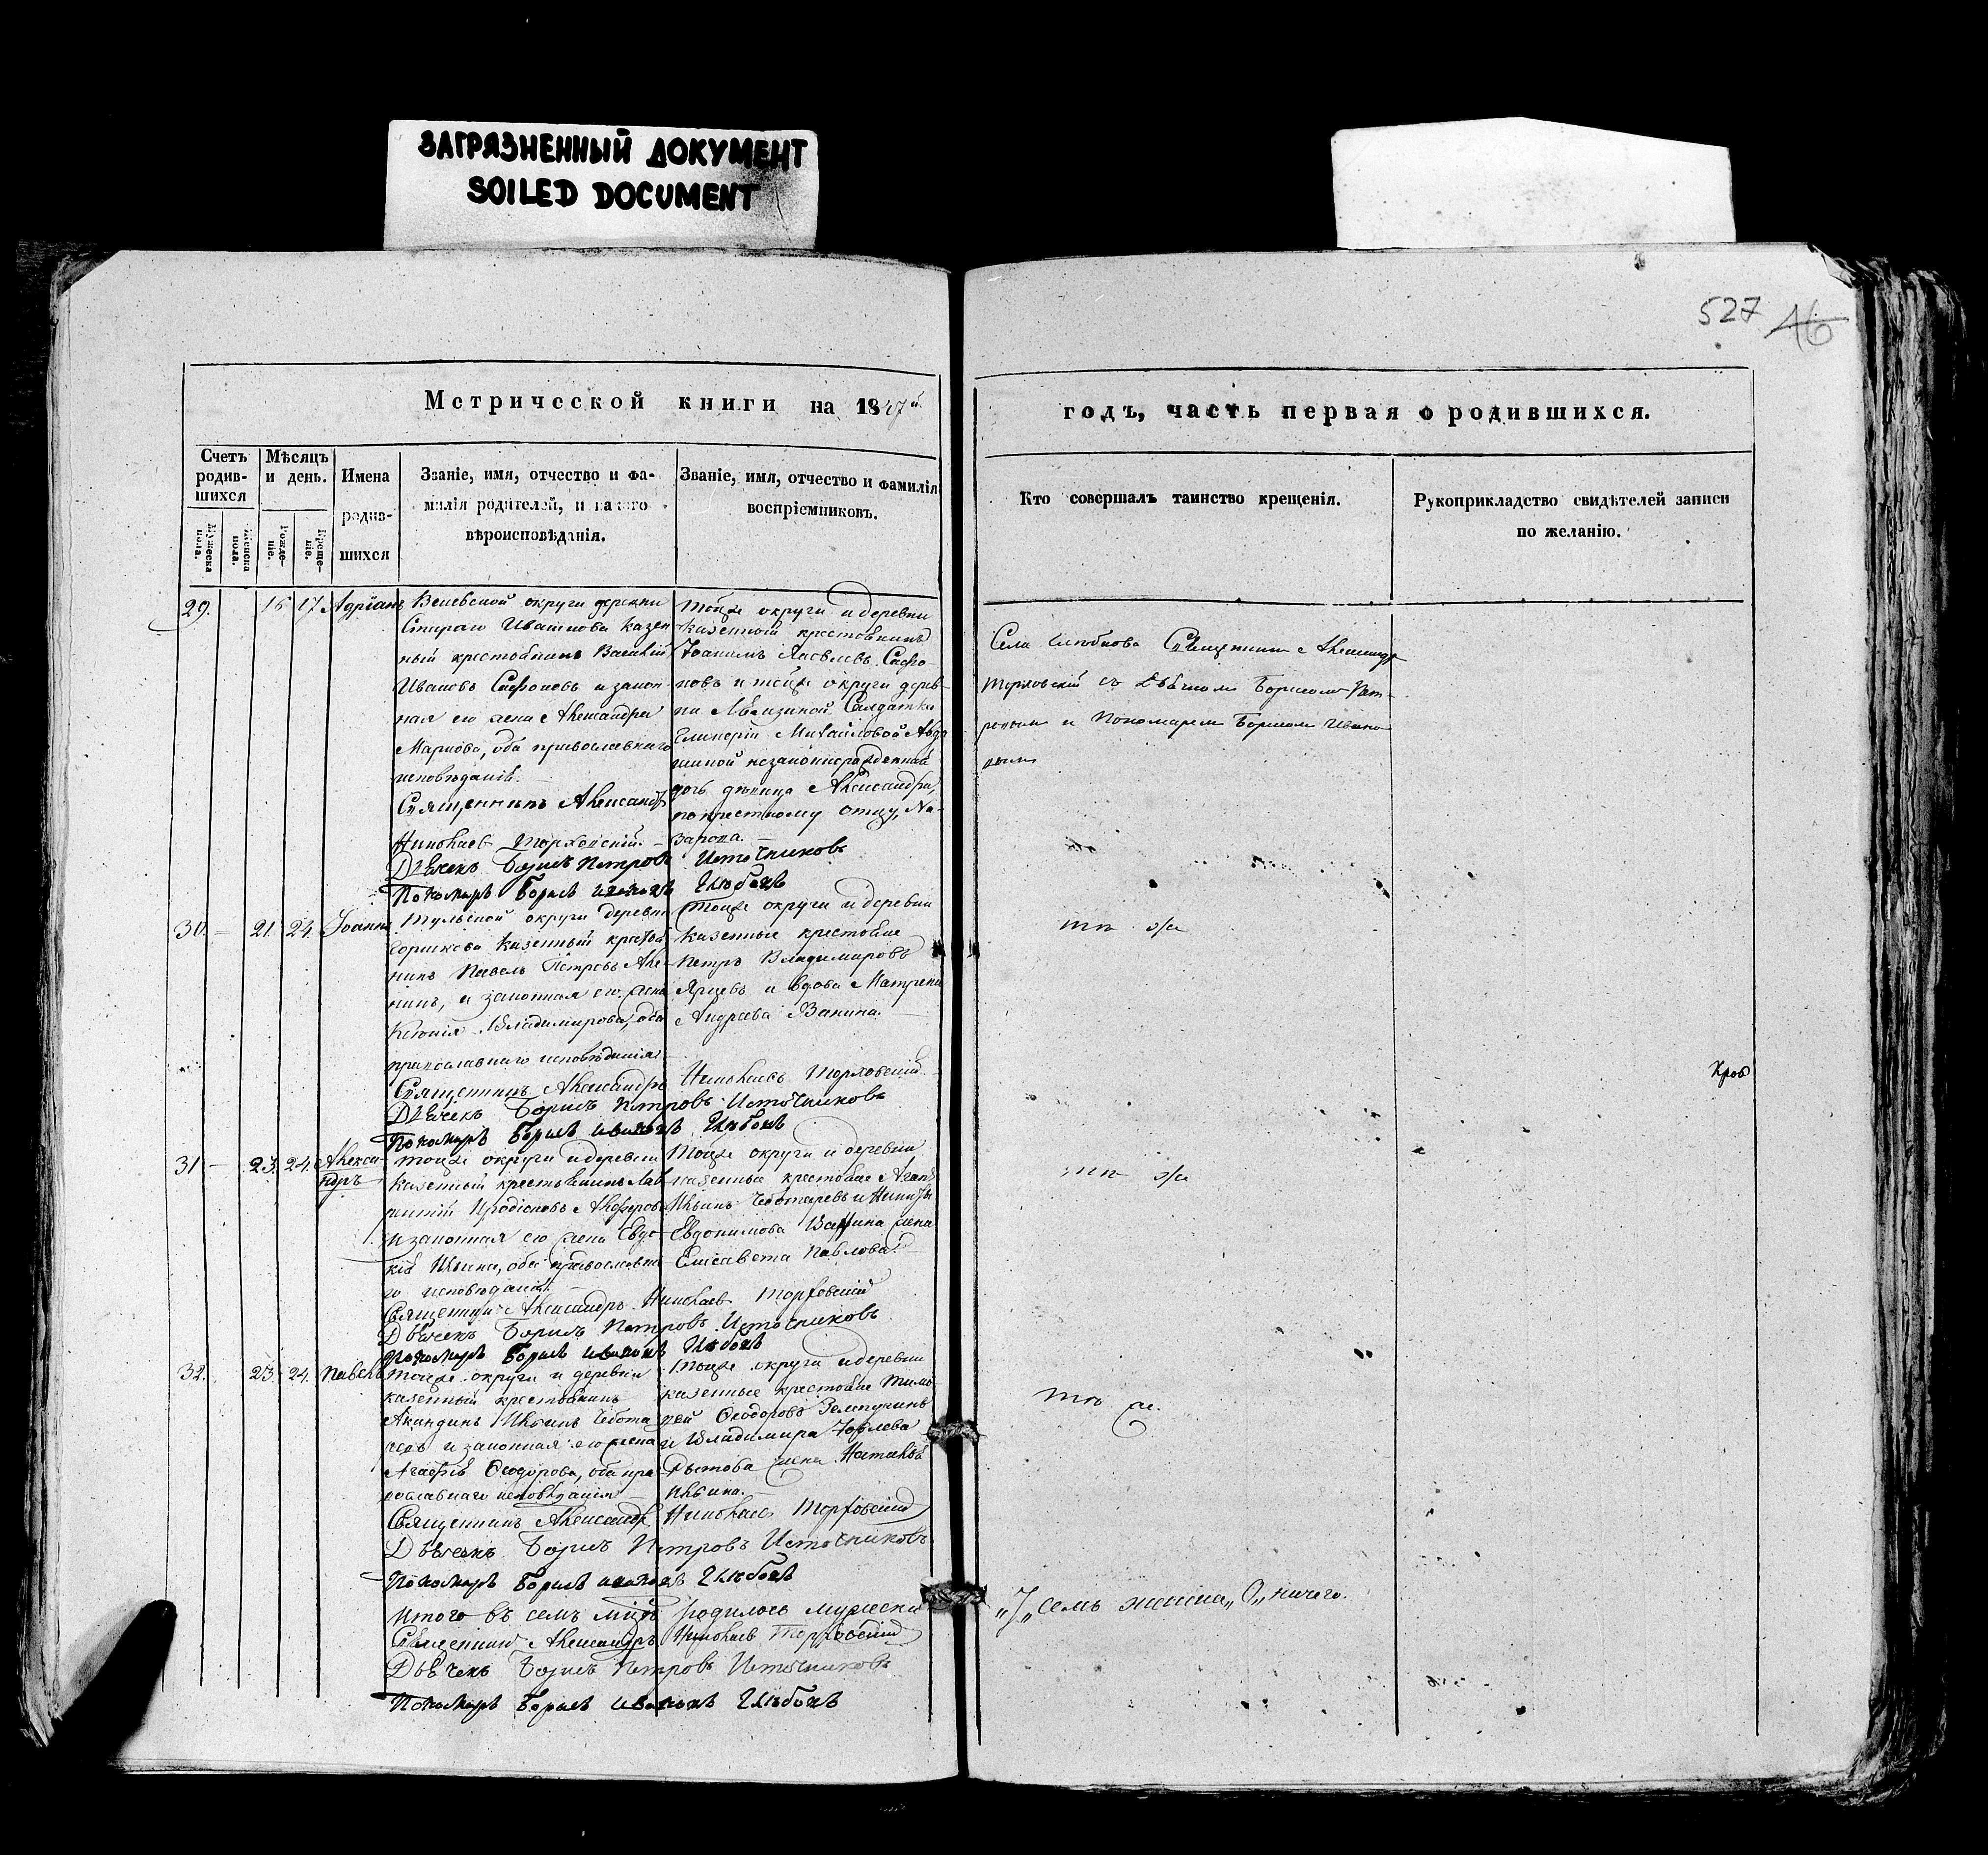 ЗАГРЯЗНЕННЫЙ ДОКУМЕНТ
SOILED DOCUMENT
527 46
Метрической книги на 1847й
годъ, часть первая о родившихся.
Счетъ родив-шихся
Мужеска пола.
Женска пола.
Мѣсяцъ и день.
Рожде-ніе.
Креще-ніе.
Имена родив-шихся
Званіе, имя, отчество и фа-
милія родителей, и какого
вѣроисповѣданія.
Званіе, имя, отчество и фамилія
воспріемниковъ.
Кто совершалъ таинство крещенія.
Рукоприкладство свидѣтелей записи
по желанію.
29. 16 17 Адріанъ
Веневской округи деревни
казен
ный крестьянинъ Василій
Ивановъ Сафоновъ и закон
ная его жена Александра
Маркова, оба православнаго
исповѣданія.
Священникъ Александръ
Николаевъ Торховскій.
Дьячекъ Борисъ Петровъ Источниковъ
Пономарь Борисъ Ивановъ Глѣбовъ
Тойже округи и деревни
казенной крестьянинъ
Іоакимъ Яковлевъ Сафо-
новъ и тойже округи дерев-
ни Солдатки
Михайловой
незаконнорожденная
дочь дѣвица Александра,
по крестному отцу, На-
зарова.
Села Священникъ Александръ
Торховскій съ Дьячкомъ Борисомъ Пет-
ровымъ и Пономаремъ Борисомъ Ивано
вымъ
30. 21. 24. Іоаннъ
Тульской округи деревни
казенный крестья
нинъ Павелъ Петровъ Але-
нинъ, и законная его жена
Ксенія Владимирова, оба
православнаго исповѣданія.
Священникъ Александръ Николаевъ Торховскій
Дьячекъ Борисъ Петровъ Источниковъ
Пономарь Борисъ Ивановъ Глѣбовъ
Тойже округи и деревни
Казенные крестьяне
Петръ Владимировъ
Ярцевъ и вдова Матрена
Андреева Ванина.
то же
Кров
31 23. 24. Алекса-
ндръ
тойже округи и деревни
казенный крестьянинъ Лав
рентій
и законная его жена Евдо
кія Ильина, оба православна
го исповѣданія.
Священникъ Александръ Николаевъ Торховскій
Дьячекъ Борисъ Петровъ Источниковъ
Пономарь Борисъ Ивановъ Глѣбовъ
Тойже округи и деревни
казенные крестьяне
Ильинъ Чеботаревъ и Никиты
Евдокимова Ванина жена
Елисавета Павлова.
то же
32. 23. 24. Павелъ
тойже округи и деревни
казенный крестьянинъ
Акиндинъ Ильинъ Чебота
ревъ и законная его жена
Агафія Ѳеодорова, оба пра-
вославнаго исповѣданія
Священникъ Александръ Николаевъ Торховскій
Дьячекъ Борисъ Петровъ Источниковъ
Пономарь Борисъ Ивановъ Глѣбовъ
Тойже округи и деревни
казенные крестьяне Тимо
фей Ѳеодоровъ
и Владимира
жена Наталья
Ильина.
то же.
Итого въ семъ мѣсяцѣ родилось мужеска
„7„ семь женска „0„ ничего.
Священникъ Александръ Николаевъ Торховскій
Дьячекъ Борисъ Петровъ Источниковъ
Пономарь Борисъ Ивановъ Глѣбовъ